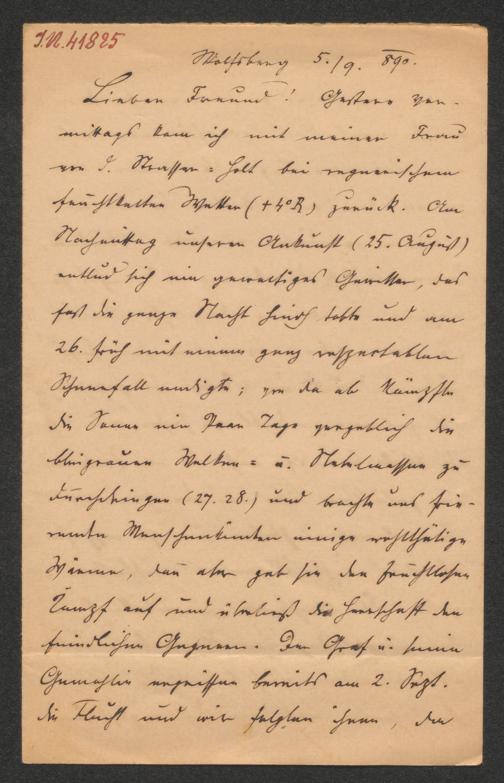 I.N. 41825
Wolfsberg 5./9. 890.
Lieber Freund! Gestern vor-
mittags kam ich mit meiner Frau
von d. Strasser-Holt bei regnerischem
feuchtkalten Wetter (+4°R) zurück. Am
Nachmittag unserer Ankunft (25. August)
entlud sich ein gewaltiges Gewitter, das
fast die ganze Nacht hindch tobte und am
26. früh mit einem ganz respectablen
Schneefall endigte; von da ab kämpfte
die Sonne ein Paar Tage vergeblich die
bleigrauen Wolken= u. Nebelmassen zu
durchdringen (27. 28.) und brachte uns frie-
renden Menschenkindern einige wohlthätige
Wärme, dañ aber gab sie den fruchtlosen
Kampf auf und überließ die Herrschaft den
feindlichen Gegnern. Der Graf u. seine
Gemahlin ergriffen bereits am 2. Sept.
die Flucht und wir folgten ihnen, da